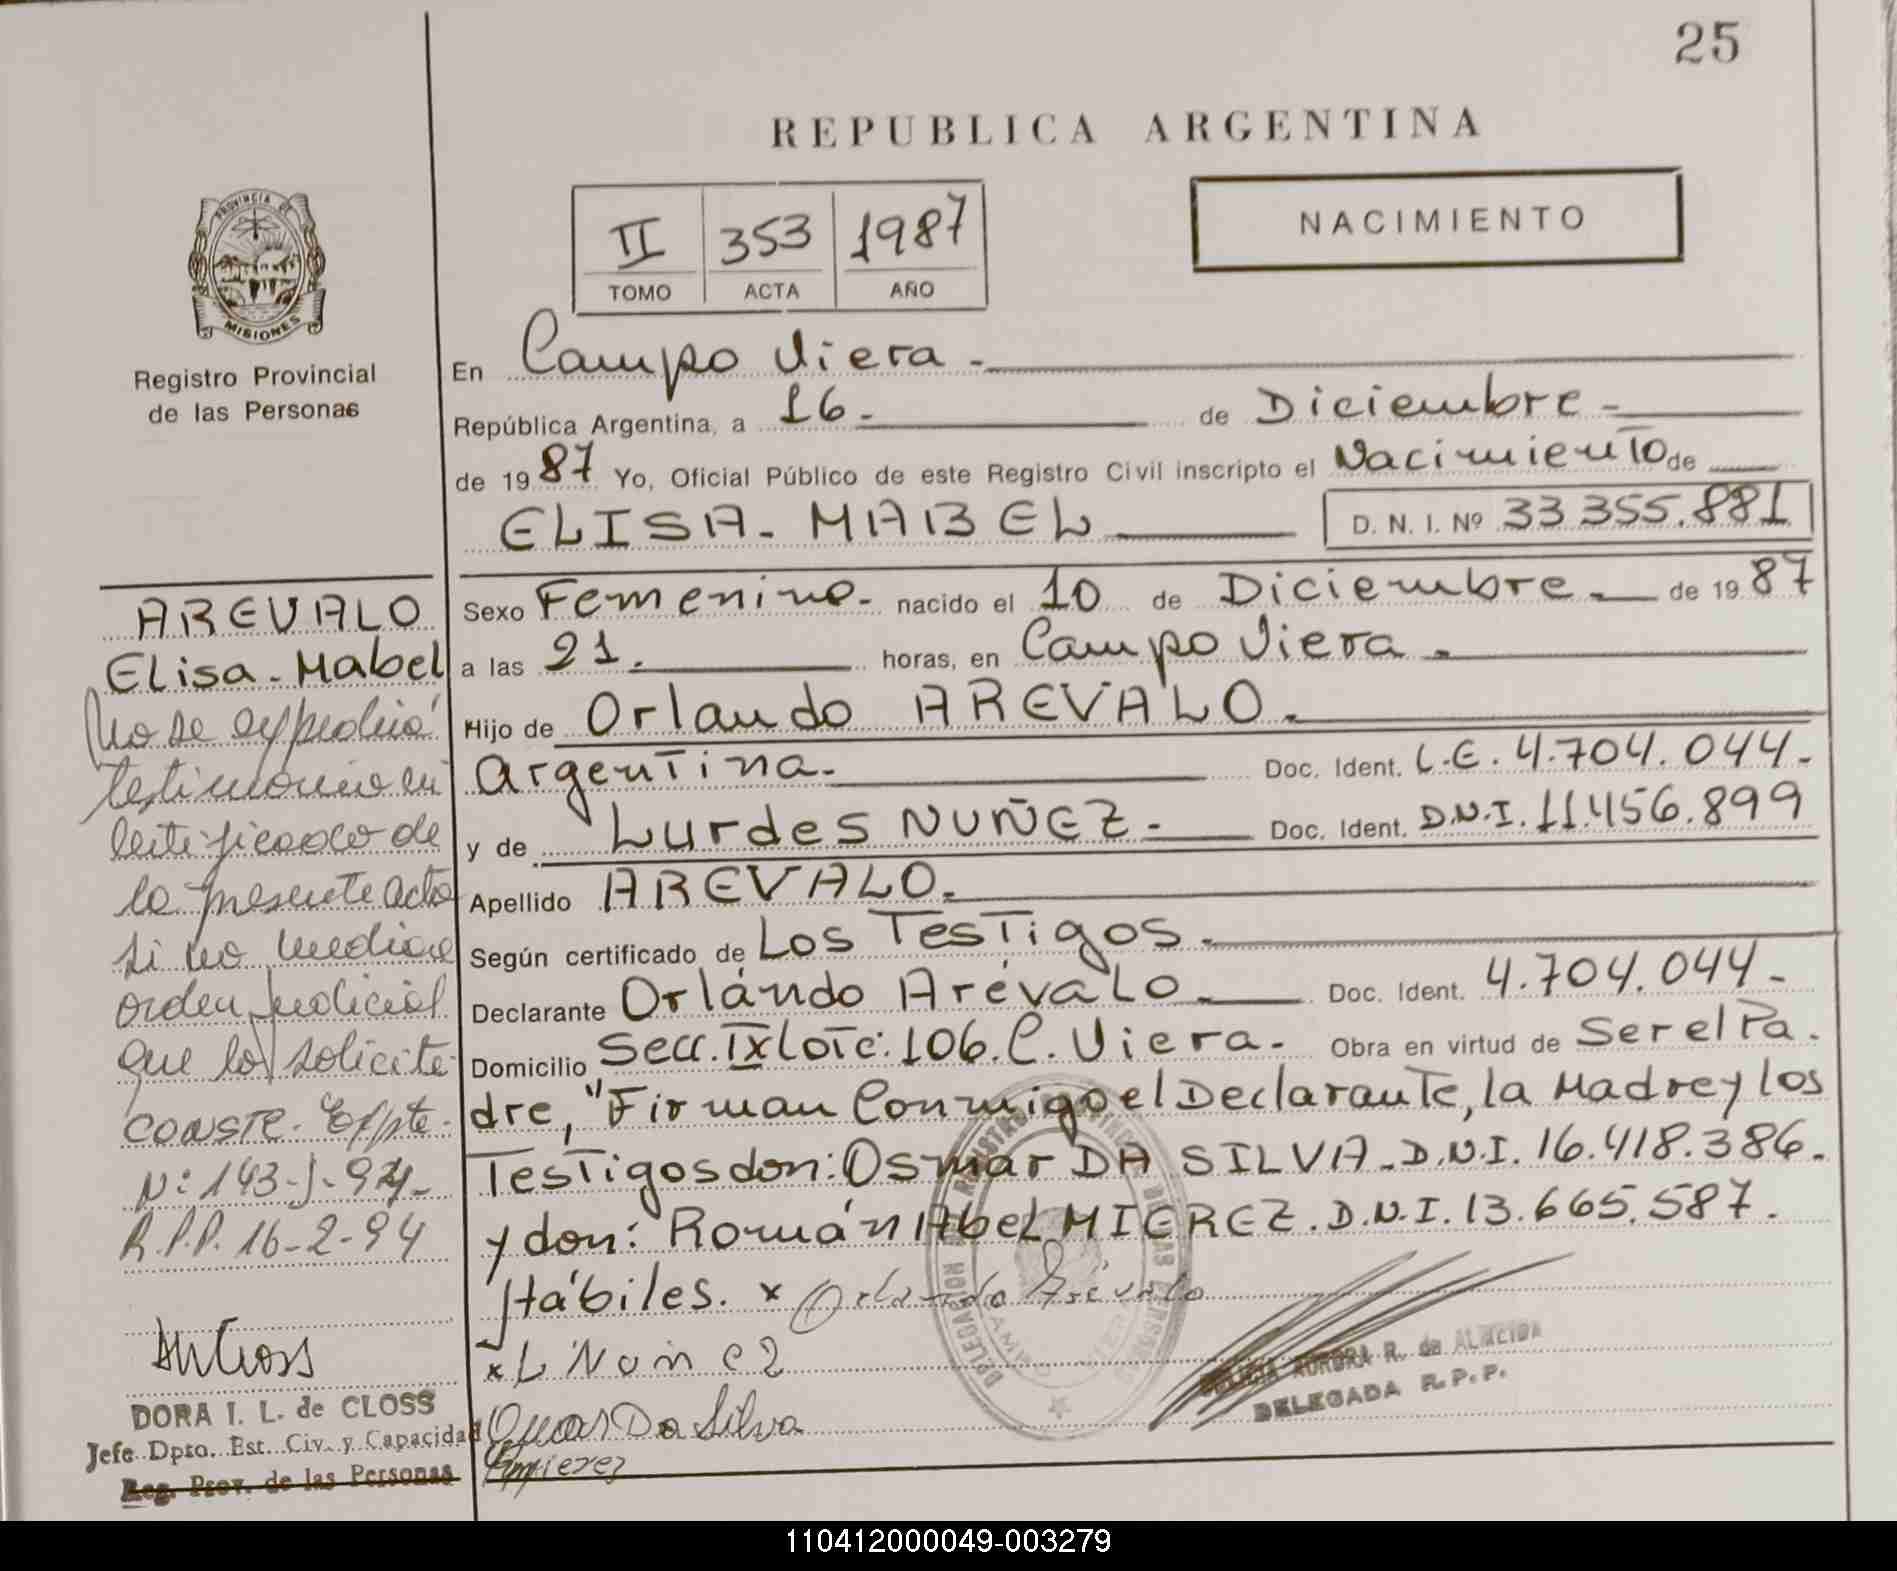 25
REPUBLICA ARGENTINA
PROVINCIA DE
MISIONES
Registro Provincial
de las Personas
II 353 1987
TOMO ACTA AÑO
NACIMIENTO
En Campo Viera.
República Argentina, a 16. de Diciembre.
de 19 87 Yo, Oficial Público de este Registro Civil inscripto el Nacimiento de
ELISA - MABEL D. N. I. Nº 33 355.881
Sexo Femenino. nacido el 10 de Diciembre. de 19 87
a las 21. horas, en Campo Viera.
Hijo de Orlando AREVALO.
Argentina. Doc. Ident. L.E. 4.704.044.
y de Lurdes NUÑEZ. Doc. Ident. D.N.I. 11.456.899
Apellido AREVALO.
Según certificado de Los Testigos.
Declarante Orlándo Arévalo. Doc. Ident. 4.704.044.
Domicilio Secc. IX lote: 106. C. Viera. Obra en virtud de Ser el Pa.
dre, "Firman Conmigo el Declarante, la Madre y los
Testigos don: Osmar DA SILVA. D.N.I. 16.418.386.
y don: Román Abel MIEREZ. D.N.I. 13.665.587.
Hábiles. x Orlando Arévalo
x L Nuñez
Osmar Da Silva
AREVALO
Elisa - Mabel
No se expedirá
testimonio ni
certificado de
la presente acta
si no mediare
orden judicial
que lo solicite
CONSTE. Expte.
Nº: 143-J-94.
R.P.P. 16-2-94
DORA I. L. de CLOSS
Jefe Dpto. Est. Civ. y Capacidad
Reg. Prov. de las Personas
AURORA R. de ALMEIDA
DELEGADA R.P.P.
110412000049-003279